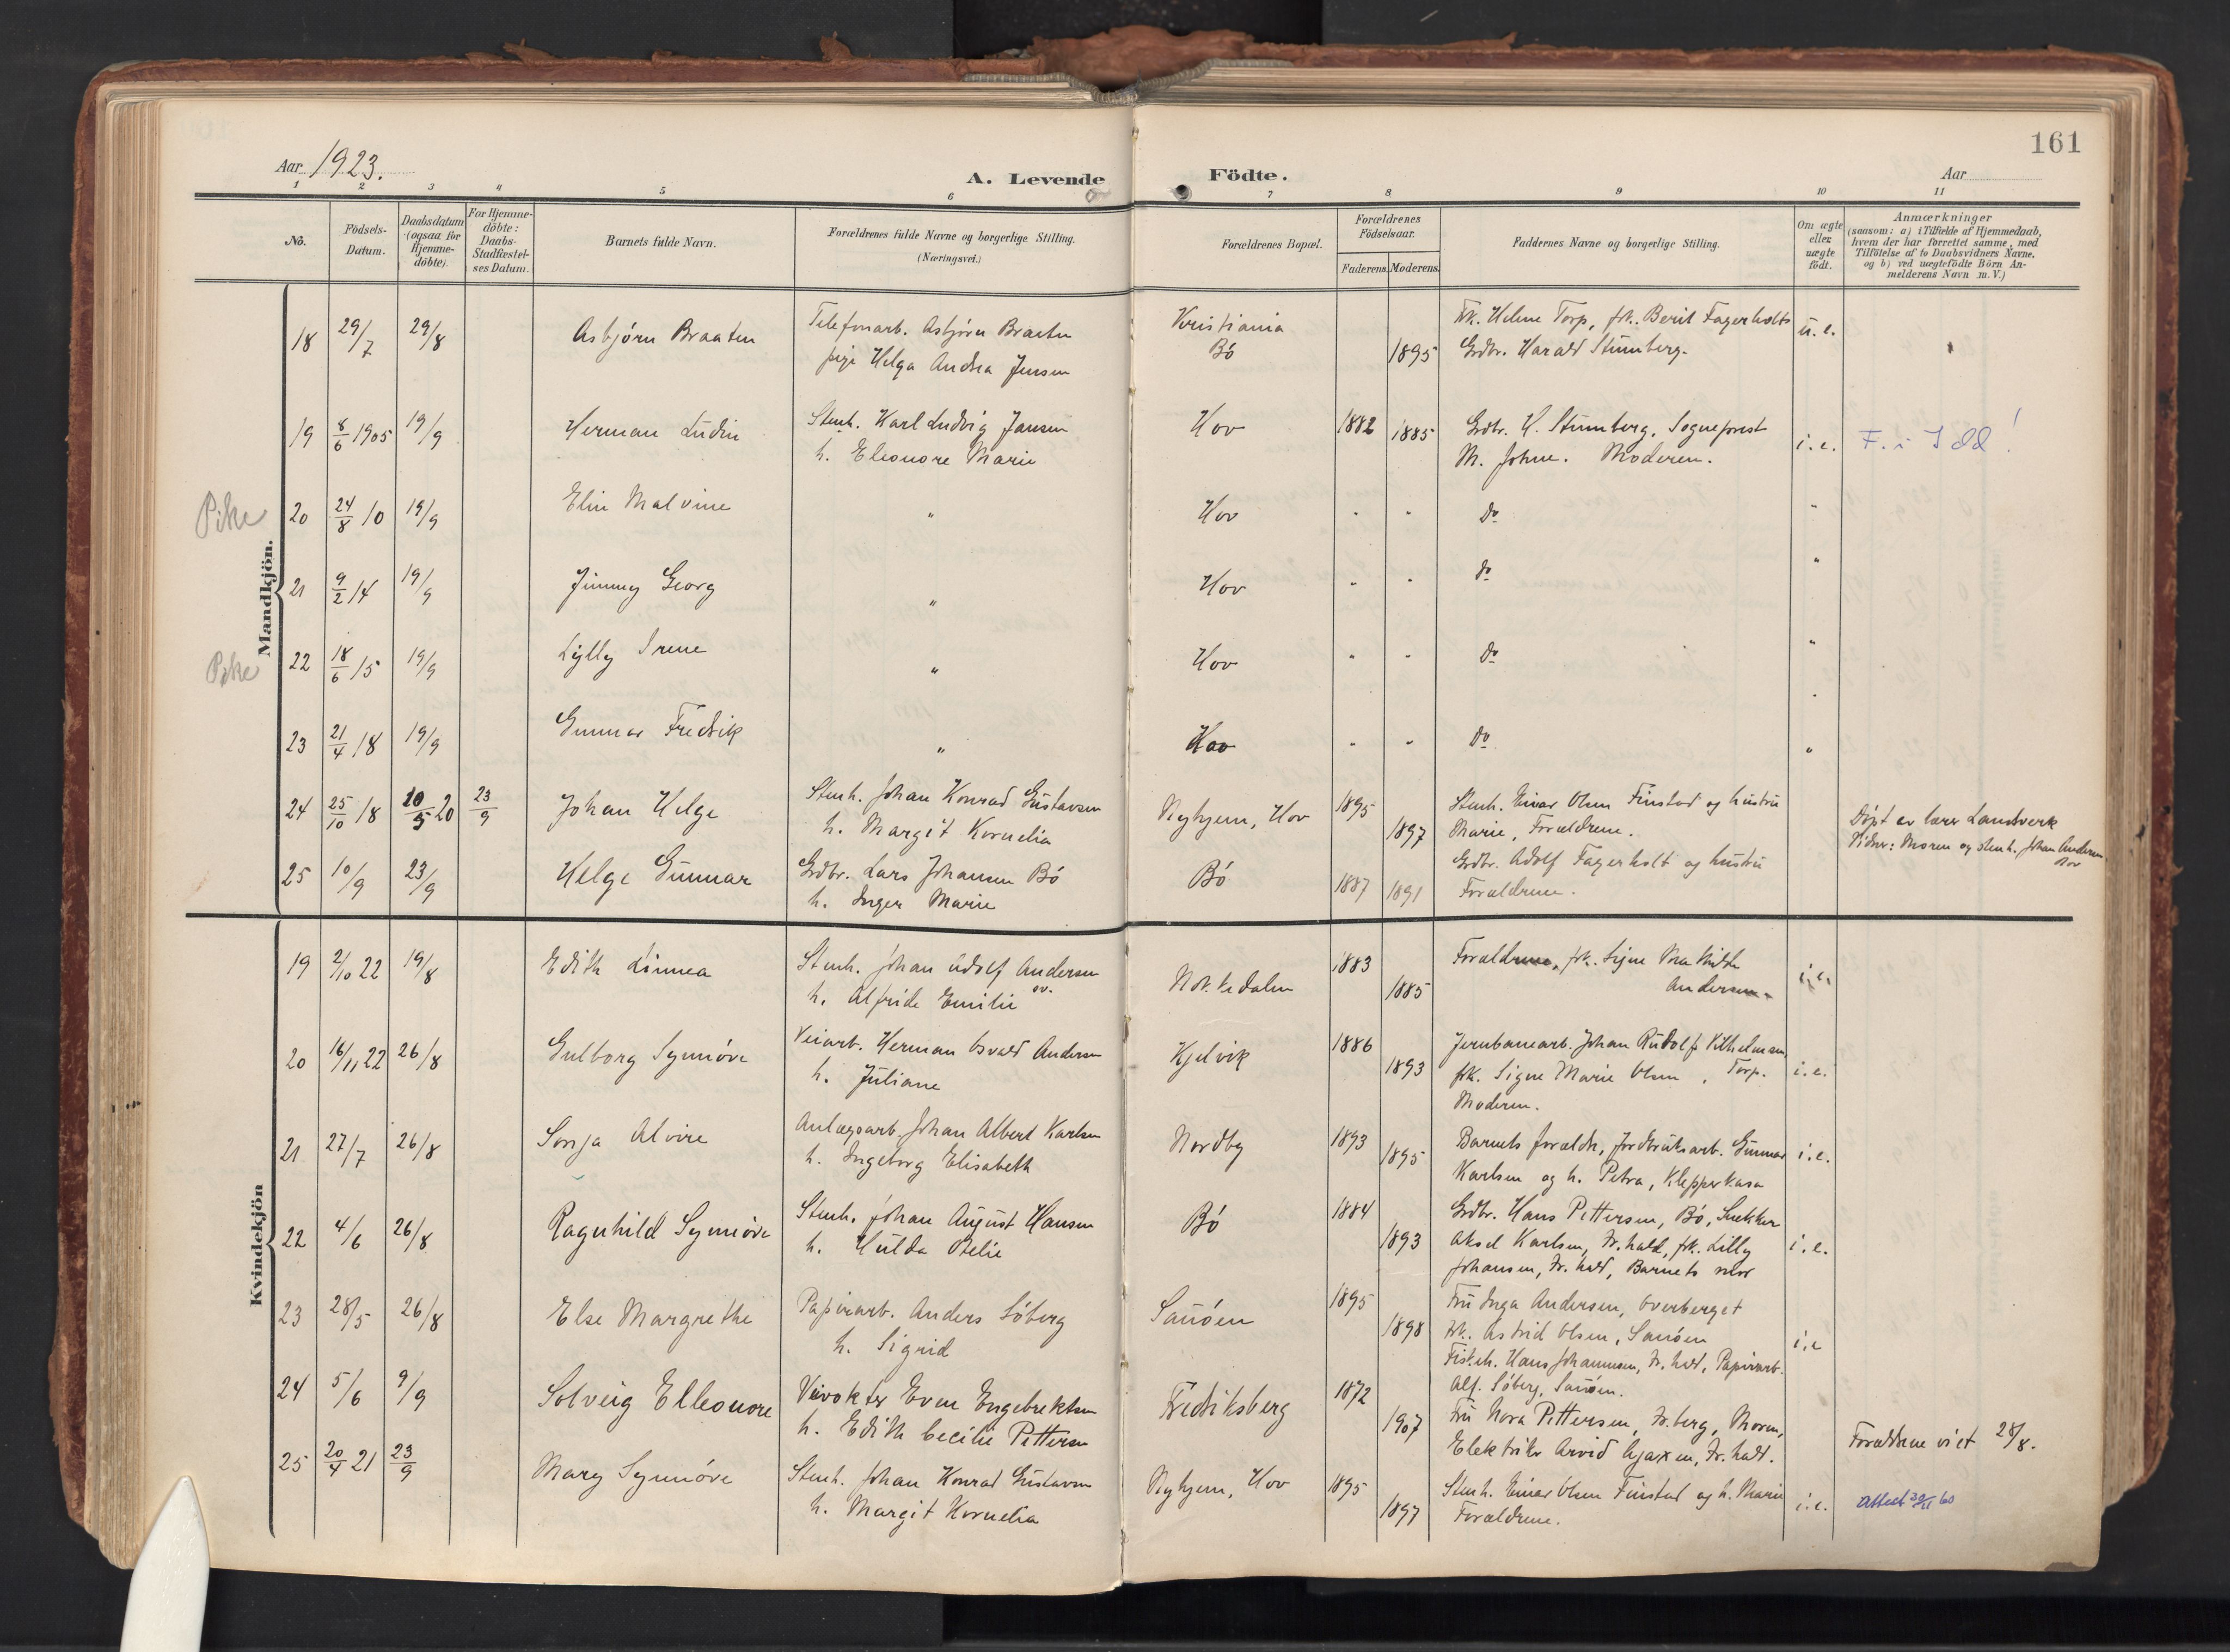 161
Aar 1923.
A. Levende Födte.
Aar
1 2 3 4 5 6 7 8 9 10 11
No.
Födsels-Datum.
Daabsdatum (ogsaa for Hjemme-döbte).
For Hjemme-döbte: Daabs-Stadfæstel-ses Datum.
Barnets fulde Navn.
Forældrenes fulde Navne og borgerlige Stilling. (Næringsvei.)
Forældrenes Bopæl.
Forældrenes Födselsaar.
Faderens. Moderens.
Faddernes Navne og borgerlige Stilling.
Om ægte eller uægte födt.
Anmærkninger (saasom: a) i Tilfælde af Hjemmedaab, hvem der har forrettet samme, med Tilföielse af to Daabsvidners Navne, og b) ved uægtefödte Börn Anmelderens Navn m.V.)
Mandkjön.
18 29/7 29/8 Asbjörn Braaten Telefonarb. Asbjörn Braaten Kristiania Frk. Helene Torp, frk. Berit Fagerholt u.e.
pige Helga Andrea Jensen Bö 1895 Grdbr. Harald Stumberg.
19 8/6 1905 19/9 Herman Ludin Stenh. Karl Ludvig Jansen Hov 1882 1885 Grdbr. H. Stumberg, Sogneprest i.e. F. i Idd!
h. Eleonore Marie M. Johne. Moderen.
Pike 20 24/8 10 19/9 Elin Malvine " Hov " " Do "
21 9/2 14 19/9 Jimmy Georg " Hov " " Do "
Pike 22 18/6 15 19/9 Lylly Irene " Hov " " Do "
23 21/4 18 19/9 Gunnar Fredrik " Hov " " Do "
24 25/10 18 10/5 20 23/9 Johan Helge Stenh. Johan Konrad Gustavsen Nyhjem, Hov 1895 Stenh. Einar Olsen Finstad og hustru
h. Margit Kornelia 1897 Marie, Forældrene. Döpt av lærer Landsverk
Vidner: Moren og stenh. Johan Andersen
25 10/9 23/9 Helge Gunnar Grdbr. Lars Johansen Bö Bö 1887 1891 Grdbr. Adolf Fagerholt og hustru
h. Inger Marie Forældrene.
Kvindekjön
19 2/10 22 19/8 Edith Linnea Stenh. Johan Adolf Andersen 1883 Forældrene, frk. Signe Mathilde i.e.
h. Alfride Emilie 1885 Andersen.
20 16/11 22 26/8 Gulborg Synnöve Veiarb. Herman Osvald Andersen Kjelvik 1886 Jernbanearb. Johan Rudolf Vilhelmsen,
h. Juliane 1893 frk. Signe Marie Olsen, Torp. i.e.
Moderen.
21 27/7 26/8 Sonja Alvire Anlægsarb. Johan Albert Karlsen Nordby 1893 Barnets forældre, jordbruksarb. Gunnar i.e.
h. Ingeborg Elisabeth 1895 Karlsen og h. Petra, Klepperkasa
22 4/6 26/8 Ragnhild Synnöve Stenh. Johan August Hansen Bö 1884 Grdbr. Hans Pettersen, Bö, Snekker
h. Hulda Otelie 1893 Aksel Karlsen, Fr.hald, frk. Lilly i.e.
Johansen, Fr.hald, Barnets mor
23 28/5 26/8 Else Margrethe Papirarb. Anders Söberg Sauöen 1895 Fru Inga Andersen, Overberget
h. Sigrid 1898 Frk. Astrid Olsen, Sauöen i.e
Fiskeh. Hans Johannesen, Fr.hald, Papirarb.
Alf. Söberg, Sauöen.
24 5/6 9/9 Solveig Elleonore Veivokter Even Engebrektsen Fredriksberg 1872
h. Edith Cecilie Pettersen 1907 Fru Nora Pettersen, Fr.berg, Moren, Forældrene viet 28/8.
Elektriker Arvid Ajaxen, Fr.hald.
25 20/4 21 23/9 Mary Synnöve Stenh. Johan Konrad Gustavsen Nyhjem, Hov 1895 Stenh. Einar Olsen Finstad og h. Marie
h. Margit Kornelia 1897 Forældrene. i.e. Attest 60